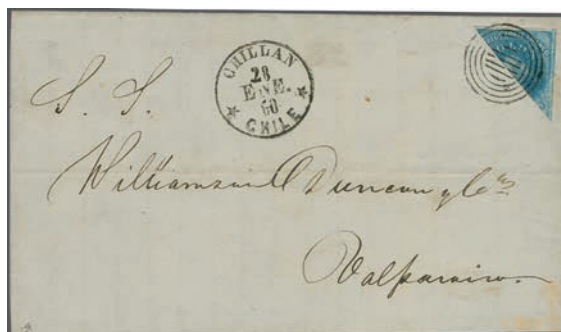 CHILLAN
28
ENE.
60
CHILE
S. S.
Williamson Duncan y Cia
Valparaiso.